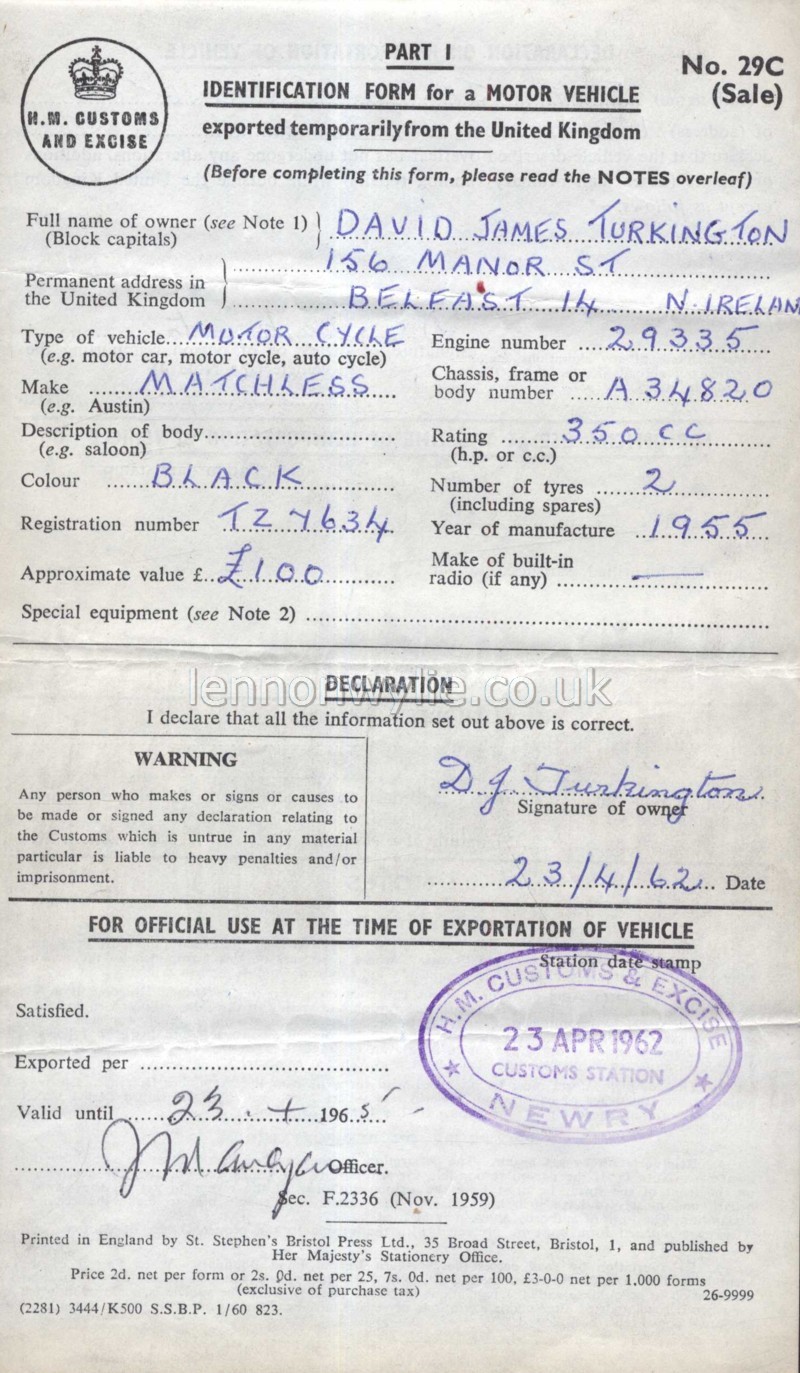 PART I
No. 29C
(Sale)
H.M. CUSTOMS
AND EXCISE
IDENTIFICATION FORM for a MOTOR VEHICLE
exported temporarily from the United Kingdom
(Before completing this form, please read the NOTES overleaf)
Full name of owner (see Note 1) DAVID JAMES TURKINGTON
(Block capitals)
156 MANOR ST
Permanent address in
the United Kingdom BELFAST 14 N. IRELAN
Type of vehicle MOTOR CYCLE
(e.g. motor car, motor cycle, auto cycle)
Engine number 29335
Make MATCHLESS
(e.g. Austin)
Chassis, frame or
body number A 34820
Description of body
(e.g. saloon)
Rating 350 CC
(h.p. or c.c.)
Colour BLACK
Number of tyres 2
(including spares)
Registration number TZ 7634
Year of manufacture 1955
Approximate value £ £100
Make of built-in
radio (if any) —
Special equipment (see Note 2)
lennonwylie.co.uk
DECLARATION
I declare that all the information set out above is correct.
WARNING
Any person who makes or signs or causes to
be made or signed any declaration relating to
the Customs which is untrue in any material
particular is liable to heavy penalties and/or
imprisonment.
D J Turkington
Signature of owner
23/4/62 Date
FOR OFFICIAL USE AT THE TIME OF EXPORTATION OF VEHICLE
Station date stamp
H.M. CUSTOMS & EXCISE
23 APR 1962
CUSTOMS STATION
NEWRY
Satisfied.
Exported per
Valid until 23 . 4 1965
Officer.
Sec. F.2336 (Nov. 1959)
Printed in England by St. Stephen's Bristol Press Ltd., 35 Broad Street, Bristol, 1, and published by
Her Majesty's Stationery Office.
Price 2d. net per form or 2s. 0d. net per 25, 7s. 0d. net per 100, £3-0-0 net per 1,000 forms
(exclusive of purchase tax)
26-9999
(2281) 3444/K500 S.S.B.P. 1/60 823.